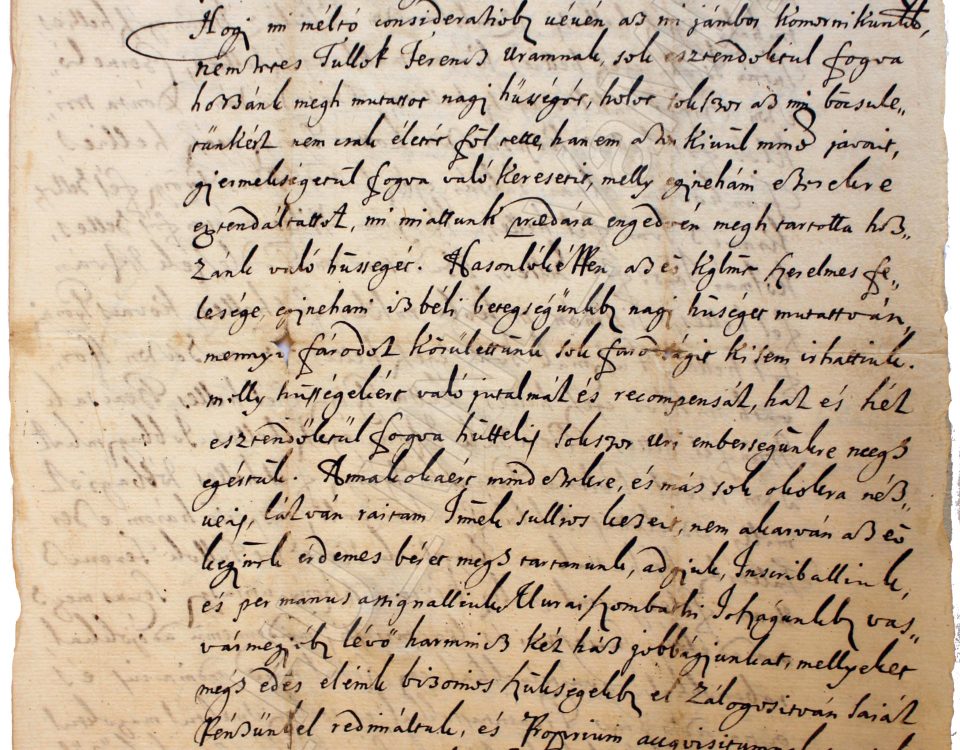 Hogj mi méltó consideratiob vévén az mi jámbor Komornikunk,
nemzetes Tullok Ferencz Uramnak, sok esztendöktül fogva
hozzánk megh mutattot nagj hüsségét, holot sokszor az mi böcsüle„
tünkért nem csak életét föl tette, hanem azon kivül mind javait,
gjermekségetül fogva való keresetit, melly egjneháni ezerekre
extendáltattot, mi miattunk prædára engedvén megh tartotta hoz„
zánk való hüsségét. Hasonlóképpen az eö kglme szerelmes fe„
lesége, egjneháni izbéli betegségünkb nagj hüséget mutattván,
mennyi fárodot körülettünk sok farodságit ki sem irhattiuk.
melly hüsségekért való jutalmát és recompensát, hat és hét
esztendöktül fogva hüttelis sokszor uri emberségünkre meegh
egértük. Annak okaért mind ezekre, és más sok okokra néz„
veis, látván raitam Istenek sullios kezeit, nem akarván az eö
kegjmek érdemes bérét megh tartanunk, adgjuk, Inscriballiuk,
és per manus assignalliuk Muraiszombathi Joszagunkb vas„
vármegjéb lévö harmincz két ház jobbágjunkat, mellyeket
megh edes eleink bizonios szükségekb el zálogositván saiát
Pénzünkel redimáltuk, és Proprium acquisitumnak